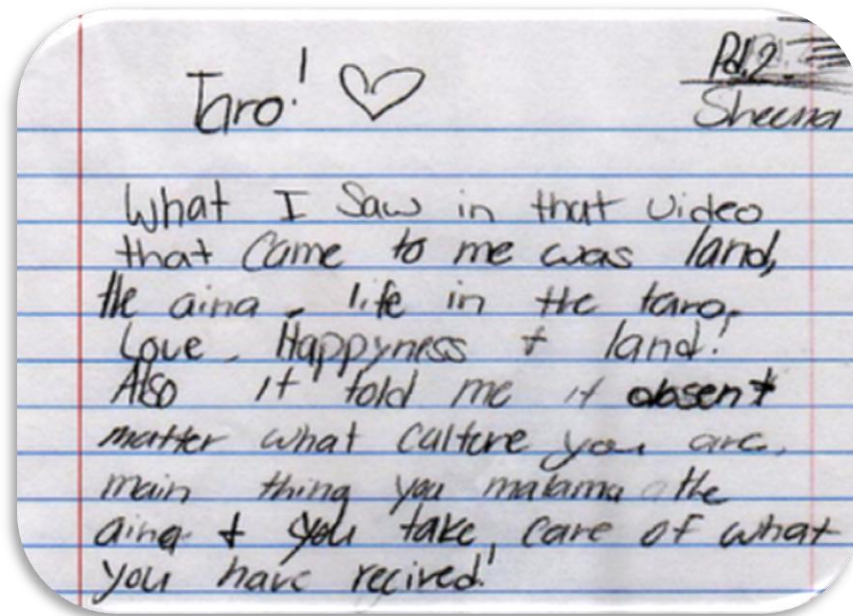 Taro! ♡
Pd.2
Sheena
What I Saw in that video
that came to me was land,
the aina - life in the taro,
Love - Happyness + land!
Also it told me it dosent
matter what culture you are,
main thing you malama the
aina + you take, care of what
you have recived!